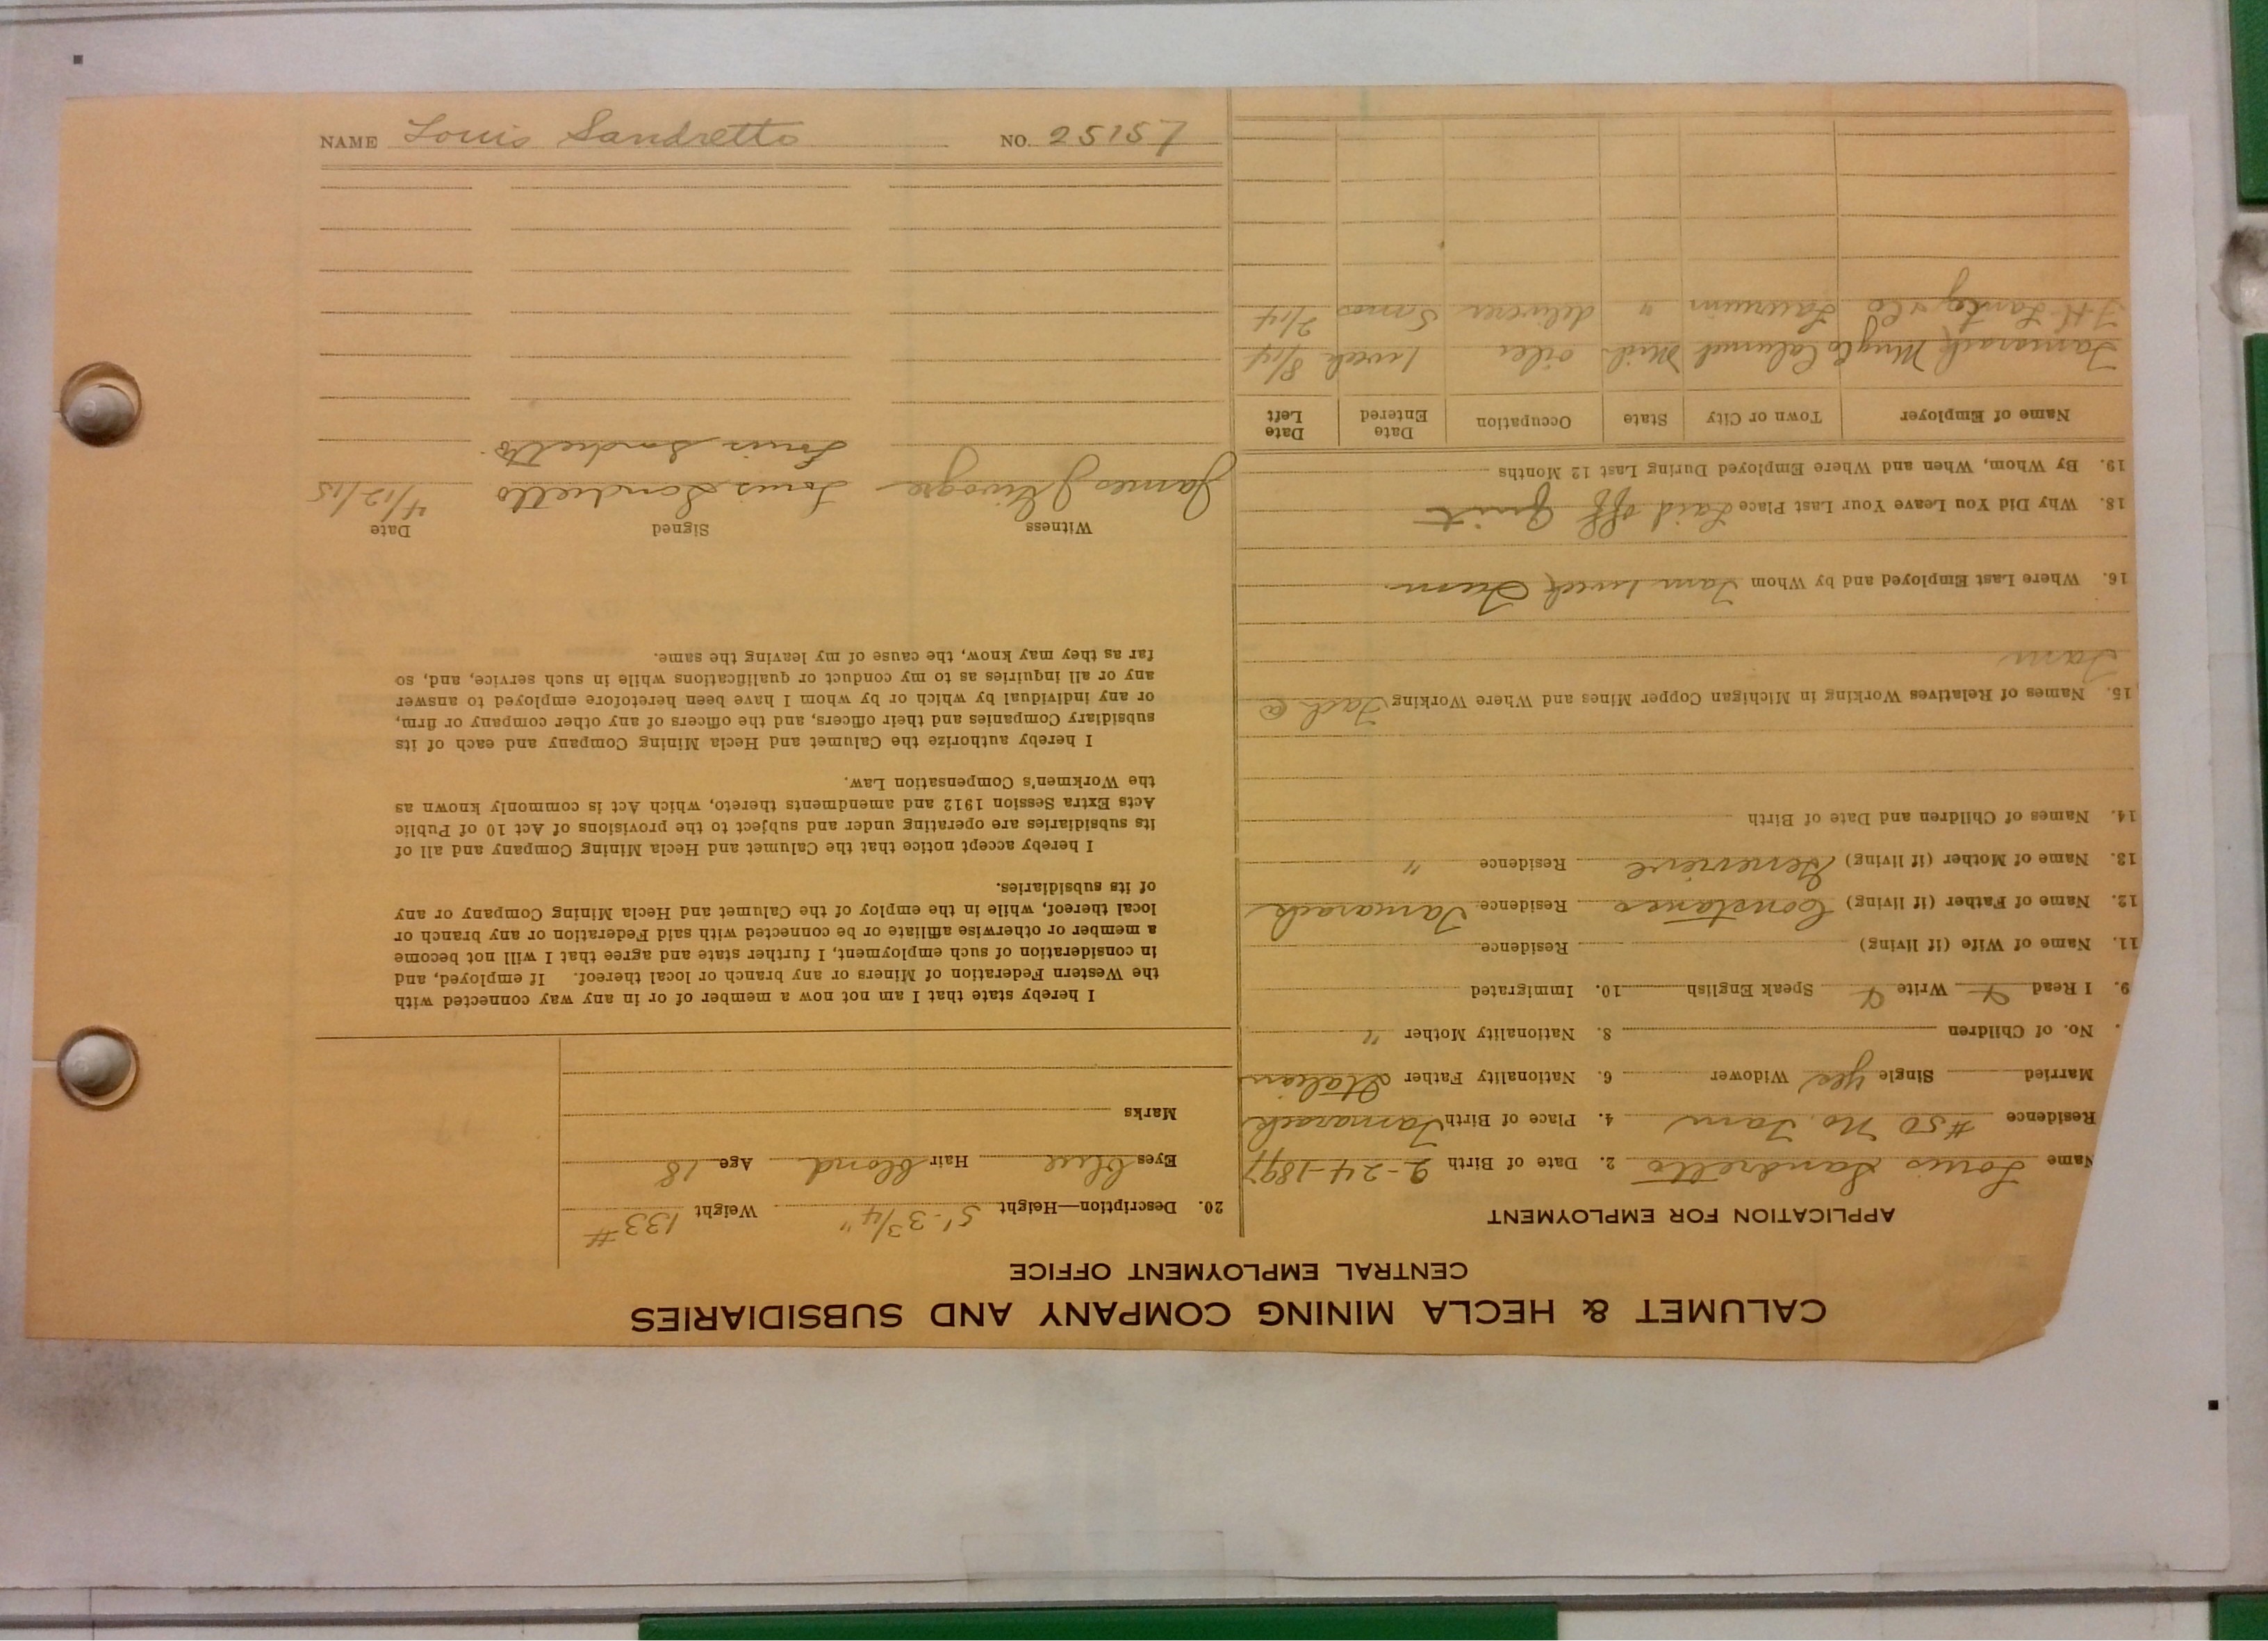 CALUMET & HECLA MINING COMPANY AND SUBSIDIARIES
CENTRAL EMPLOYMENT OFFICE
APPLICATION FOR EMPLOYMENT
Name Louis Sandretto 2. Date of Birth 2-24-1897
Residence #50 No. Tam 4. Place of Birth Tamarack
Married Single yes Widower 6. Nationality Father Italian
. No. of Children 8. Nationality Mother "
9. I Read Write Speak English 10. Immigrated
11. Name of Wife (if living) Residence
12. Name of Father (if living) Residence Tamarack
13. Name of Mother (if living) Genevieve Residence "
14. Names of Children and Date of Birth
15. Names of Relatives Working in Michigan Copper Mines and Where Working @
Tam
16. Where Last Employed and by Whom Tam
18. Why Did You Leave Your Last Place Laid off Quit
19. By Whom, When and Where Employed During Last 12 Months
Name of Employer Town or City State Occupation Date Entered Date Left
Tamarack Calumet Mich oiler 1 week 8/14
Laurium " deliverer 2/14
20. Description—Height 5'-3 3/4" Weight 133#
Eyes blue Hair blond Age 18
Marks
I hereby state that I am not now a member of or in any way connected with
the Western Federation of Miners or any branch or local thereof. If employed, and
in consideration of such employment, I further state and agree that I will not become
a member or otherwise affiliate or be connected with said Federation or any branch or
local thereof, while in the employ of the Calumet and Hecla Mining Company or any
of its subsidiaries.
I hereby accept notice that the Calumet and Hecla Mining Company and all of
its subsidiaries are operating under and subject to the provisions of Act 10 of Public
Acts Extra Session 1912 and amendments thereto, which Act is commonly known as
the Workmen's Compensation Law.
I hereby authorize the Calumet and Hecla Mining Company and each of its
subsidiary Companies and their officers, and the officers of any other company or firm,
or any individual by which or by whom I have been heretofore employed to answer
any or all inquiries as to my conduct or qualifications while in such service, and, so
far as they may know, the cause of my leaving the same.
Witness Signed Date
James Louis Sandretto 4/12/15
Louis Sandretto
NAME Louis Sandretto NO. 25157